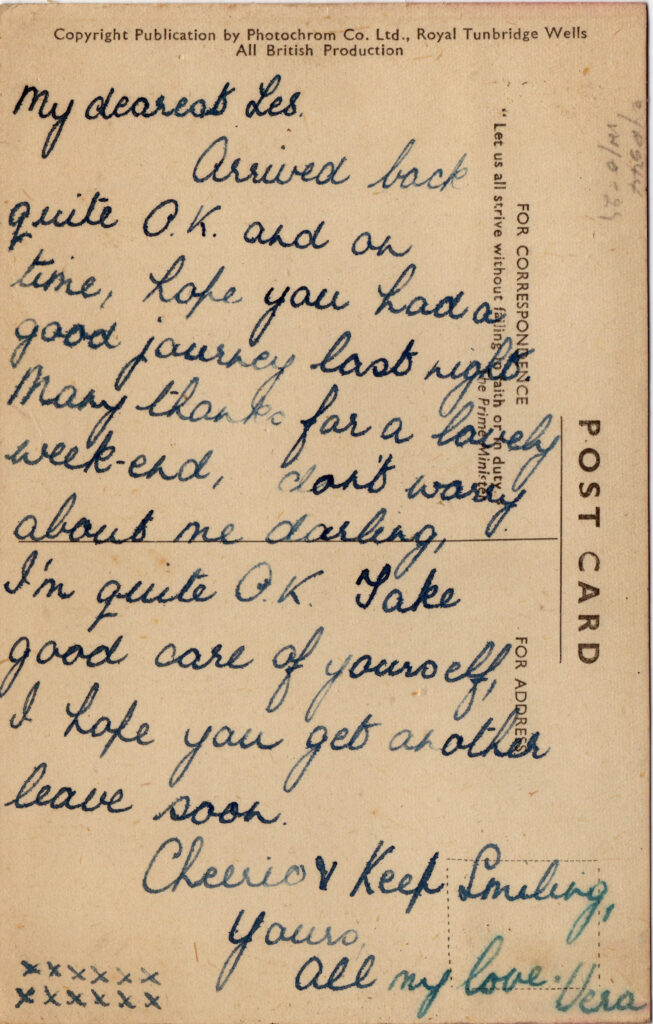 Copyright Publication by Photochrom Co. Ltd., Royal Tunbridge Wells
All British Production
My dearest Les.
Arrived back
quite O.K. and on
time, hope you had a
good journey last night
Many thanks for a lovely
week-end, don't worry
about me darling,
I'm quite O.K. Take
good care of yourself,
I hope you get another
leave soon.
Cheerio & Keep Smiling,
Yours,
All my love. Vera
xxxxxx
xxxxxx
"Let us all strive without failing in faith or in duty"
The Prime Minister
FOR CORRESPONDENCE
FOR ADDRESS
POST CARD